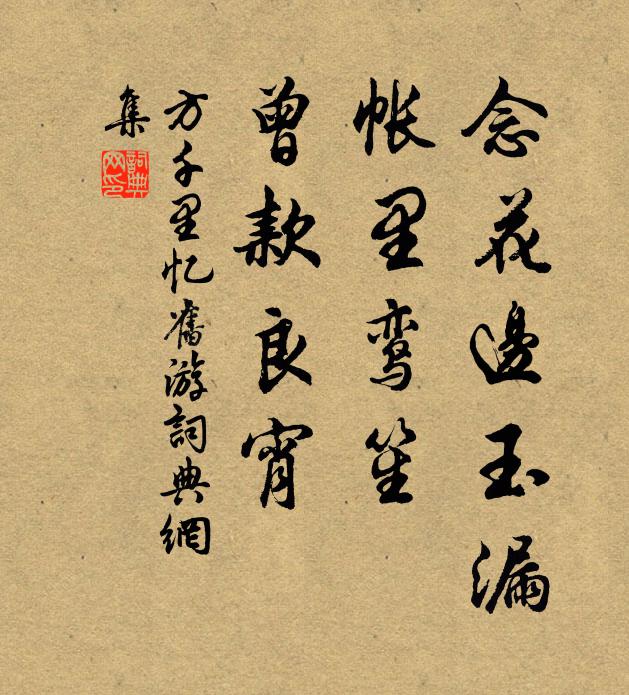 念花邊玉漏
帐里鸾笙
曾款良宵
方千里忆舊游詞典網
集
詞典
网印